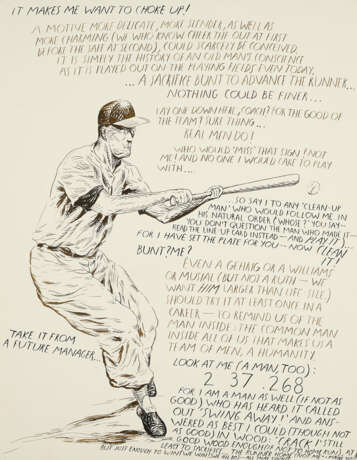 IT MAKES ME WANT TO CHOKE UP!
A MOTIVE MORE DELICATE, MORE SLENDER, AS WELL AS
MORE CHARMING (WE WHO KNOW CHEER THE OUT AT FIRST
BEFORE THE SAFE AT SECOND), COULD SCARCELY BE CONCEIVED.
IT IS SIMPLY THE HISTORY OF AN OLD MAN'S CONSCIENCE
AS IT IS PLAYED OUT ON THE PLAYING FIELDS EVEN TODAY.
... A SACRIFICE BUNT TO ADVANCE THE RUNNER...
NOTHING COULD BE FINER...
LAY ONE DOWN HERE, COACH? FOR THE GOOD OF
THE TEAM? SURE THING...
REAL MEN DO!
WHO WOULD "MISS" THAT SIGN? NOT
ME! AND NO ONE I WOULD CARE TO PLAY
WITH....
SO SAY I TO ANY 'CLEAN-UP
MAN' WHO WOULD FOLLOW ME IN
HIS NATURAL ORDER (WHOSE? YOU SAY—
YOU DON'T QUESTION THE MAN WHO MADE IT
READ THE LINE UP CARD INSTEAD — AND PLAY IT)
FOR I HAVE SET THE PLATE FOR YOU — NOW CLEAN
IT!
BUNT? ME?
EVEN A GEHRIG OR A WILLIAMS
OR MUSIAL (BUT NOT A RUTH — WE
WANT HIM LARGER THAN LIFE SIZE)
SHOULD TRY IT AT LEAST ONCE IN A
CAREER — TO REMIND US OF THE
MAN INSIDE: THE COMMON MAN
INSIDE ALL OF US THAT MAKES US A
TEAM OF MEN, A HUMANITY.
TAKE IT FROM
A FUTURE MANAGER...
LOOK AT ME (A MAN, TOO):
2 37 .268
FOR I AM A MAN AS WELL (IF NOT AS
GOOD) WHO HAS HEARD IT CALLED
OUT "SWING AWAY!" AND ANS-
WERED AS BEST I COULD (THOUGH NOT
AS GOOD) IN WOOD: "CRACK!" STILL
GOOD WOOD ENOUGH, AGAIN, AT